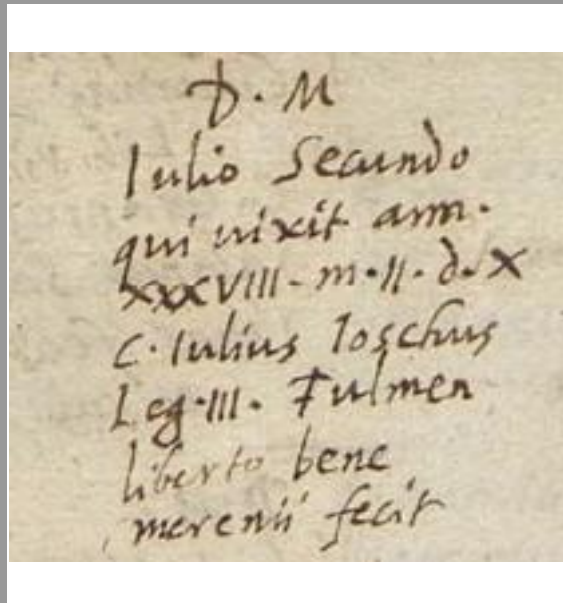 D · M
Iulio Secundo
qui uixit ann.
XXXVIII · m · II · d · X
C · Iulius Ioschus
Leg · III · Fulmen
liberto bene
merenti fecit